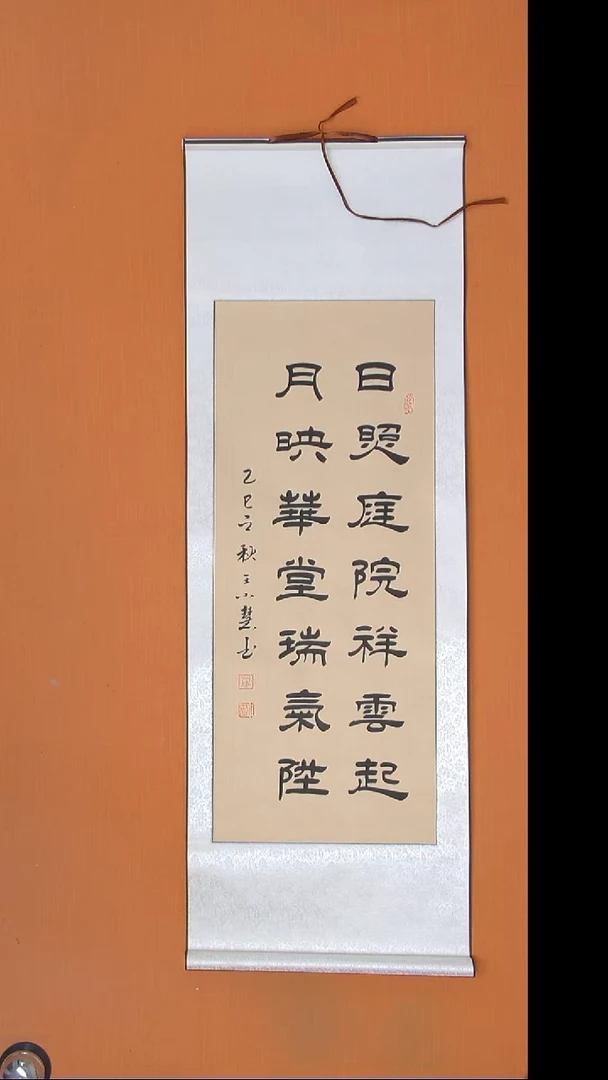 日照庭院祥雲起
月映華堂瑞氣陞
乙巳立秋王小慧书